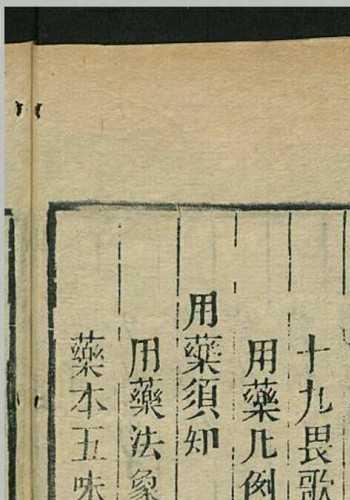 十九畏歌
用藥凡例
用藥須知
用藥法象
藥本五味